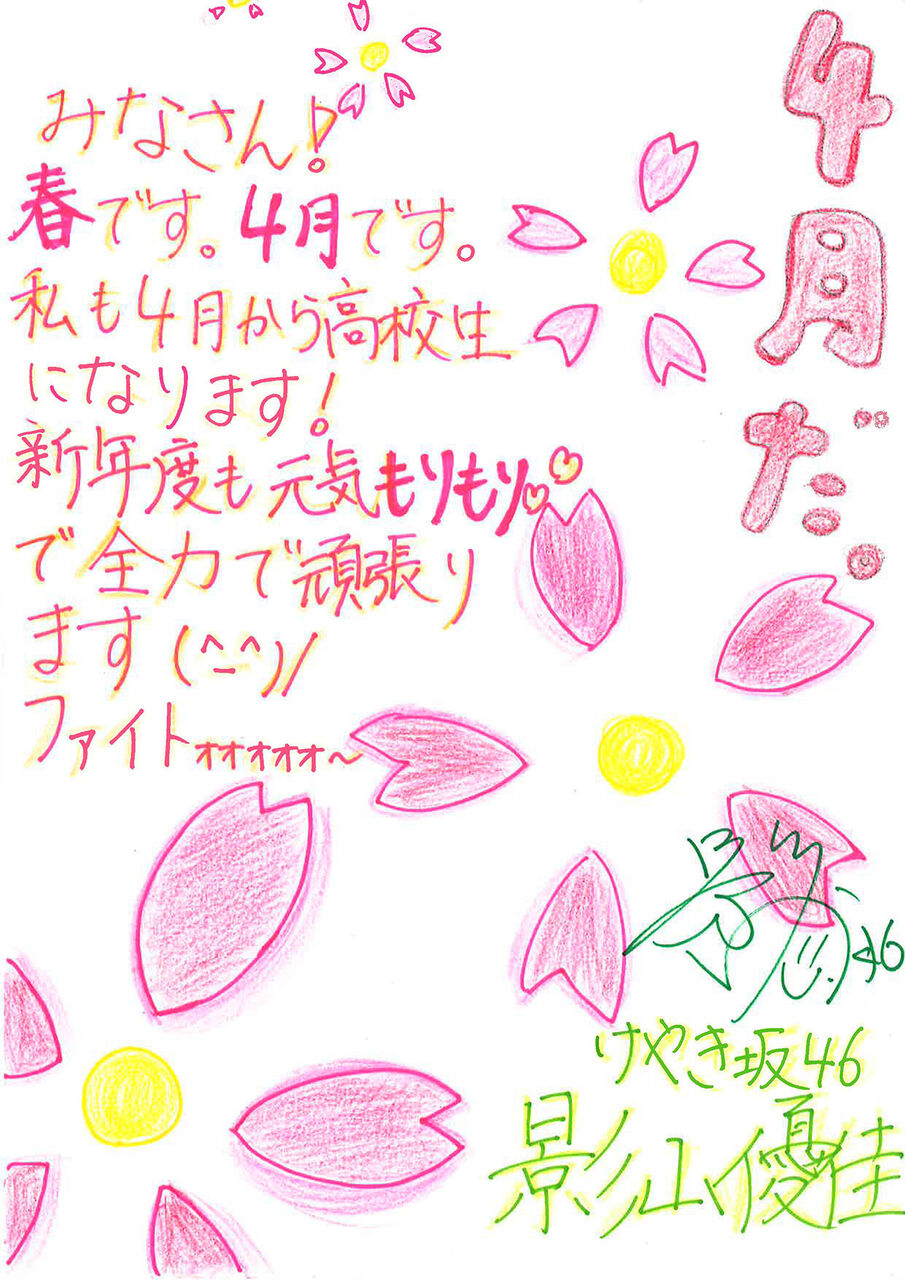 4月だ。
みなさん!
春です。4月です。
私も4月から高校生
になります!
新年度も元気もりもり♡♡
で全力で頑張り
ます(^_^)/
ファイトォォォォォ〜
46
けやき坂46
影山優佳